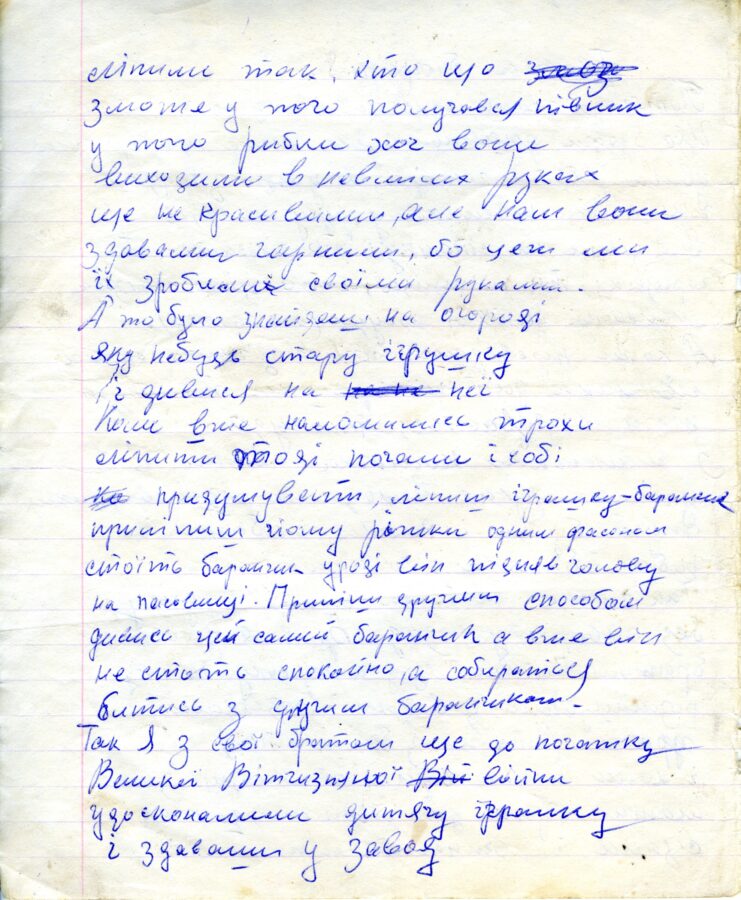 ліпили так, хто що
зможе у кого получався півник
у кого рибки хоч вони
виходили в невмілих руках
ще не красивими, але нам вони
здавались гарними, бо цеж ми
їх зробили своїми руками.
А то було знайдеш на огороді
яку небудь стару іграшку
і дивися на неї
Коли вже наломились трохи
ліпити тоді почали і собі
придумувати, ліпиш іграшку-баранчик
приліпиш йому ріжки одним фасоном
стоїть баранчик уроді він підняв голову
на пасовищі. Приліпи другим способом
дивись цей самий баранчик а вже він
не стоїть спокойно, а собирається
битись з другим баранчиком.
Так Я з свої братом ще до початку
Великої Вітчизняної війни
удосконалили дитячу іграшку
і здавали у завод